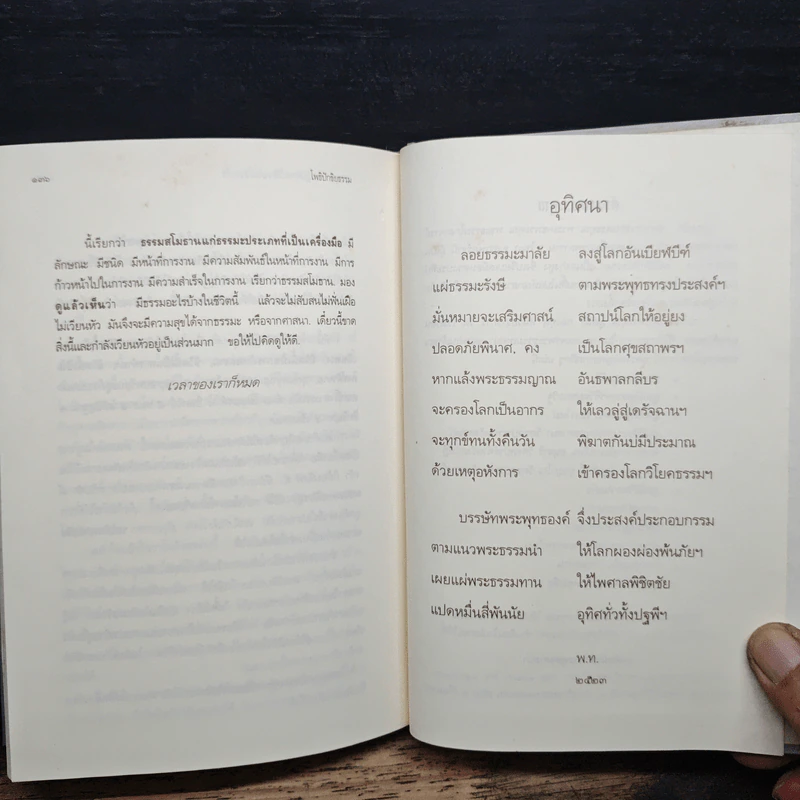 ๑๙๖ โพธิปักขิยธรรม
นี้เรียกว่า ธรรมสโมธานแก่ธรรมะประเภทที่เป็นเครื่องมือ มี
ลักษณะ มีชนิด มีหน้าที่การงาน มีความสัมพันธ์ในหน้าที่การงาน มีการ
ก้าวหน้าไปในการงาน มีความสำเร็จในการงาน เรียกว่าธรรมสโมธาน. มอง
ดูแล้วเห็นว่า มีธรรมอะไรบ้างในชีวิตนี้ แล้วจะไม่สับสนไม่ฟั่นเฝือ
ไม่เวียนหัว มันจึงจะมีความสุขได้จากธรรมะ หรือจากศาสนา. เดี๋ยวนี้ขาด
สิ่งนี้และกำลังเวียนหัวอยู่เป็นส่วนมาก ขอให้ไปคิดดูให้ดี.
เวลาของเราก็หมด
อุทิศนา
ลอยธรรมะมาลัย ลงสู่โลกอันเบียฬบีฑ์
แผ่ธรรมะรังษี ตามพระพุทธทรงประสงค์ฯ
มั่นหมายจะเสริมศาสน์ สถาปน์โลกให้อยู่ยง
ปลอดภัยพินาศ, คง เป็นโลกศุขสถาพรฯ
หากแล้งพระธรรมญาณ อันธพาลกลีบร
จะครองโลกเป็นอากร ให้เลวลู่สู่เดรัจฉานฯ
จะทุกข์ทนทั้งคืนวัน พิฆาตกันบ่มีประมาณ
ด้วยเหตุอหังการ เข้าครองโลกวิโยคธรรมฯ
บรรษัทพระพุทธองค์ จึ่งประสงค์ประกอบกรรม
ตามแนวพระธรรมนำ ให้โลกผองผ่องพ้นภัยฯ
เผยแผ่พระธรรมทาน ให้ไพศาลพิชิตชัย
แปดหมื่นสี่พันนัย อุทิศทั่วทั้งปฐพีฯ
พ.ท.
๒๕๒๓